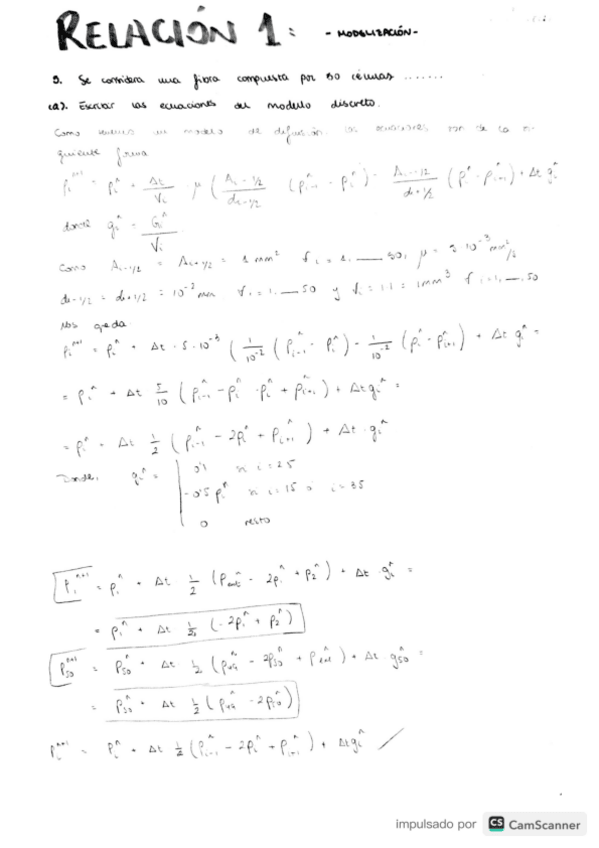 RELACIÓN 1: - MODELIZACIÓN -
9. Se considera una fibra compuesta por 50 células .......
(a). Escribir las ecuaciones del modelo discreto.
Como un modelo de difusión, las ecuaciones son de la si-
guiente forma
p_i^{n+1} = p_i^n + Δt/V_i · μ ( A_{i-1/2}/d_{i-1/2} (p_{i-1}^n - p_i^n) - A_{i+1/2}/d_{i+1/2} (p_i^n - p_{i+1}^n) + Δt g_i^n
donde g_i^n = G_i^n/V_i
Como A_{i-1/2} = A_{i+1/2} = 1 mm² ∀ i = 1, __ 50, μ = 10^{-3} mm²/s
d_{i-1/2} = d_{i+1/2} = 10^{-2} mm ∀ i = 1, __ 50 y V_i = 1·1 = 1mm³ ∀ i = 1, .. 50
nos queda
p_i^{n+1} = p_i^n + Δt · 5·10^{-3} ( 1/10^{-2} (p_{i-1}^n - p_i^n) - 1/10^{-2} (p_i^n - p_{i+1}^n) + Δt g_i^n =
= p_i^n + Δt 5/10 (p_{i-1}^n - p_i^n - p_i^n + p_{i+1}^n) + Δt g_i^n =
= p_i^n + Δt 1/2 (p_{i-1}^n - 2p_i^n + p_{i+1}^n) + Δt · g_i^n
Donde, g_i^n = | 0'1 si i = 25
- 0'5 p_i^n si i = 15 ó i = 35
0 resto
p_1^{n+1} = p_1^n + Δt 1/2 (p_ext^n - 2p_1^n + p_2^n) + Δt g_i^n =
= p_1^n + Δt 1/2 (-2p_1^n + p_2^n)
p_50^{n+1} = p_50^n + Δt 1/2 (p_49^n - 2p_50^n + p_ext^n) + Δt g_50^n =
= p_50^n + Δt 1/2 (p_49^n - 2p_50^n)
p_i^{n+1} = p_i^n + Δt 1/2 (p_{i-1}^n - 2p_i^n + p_{i+1}^n) + Δt g_i^n
impulsado por CS CamScanner